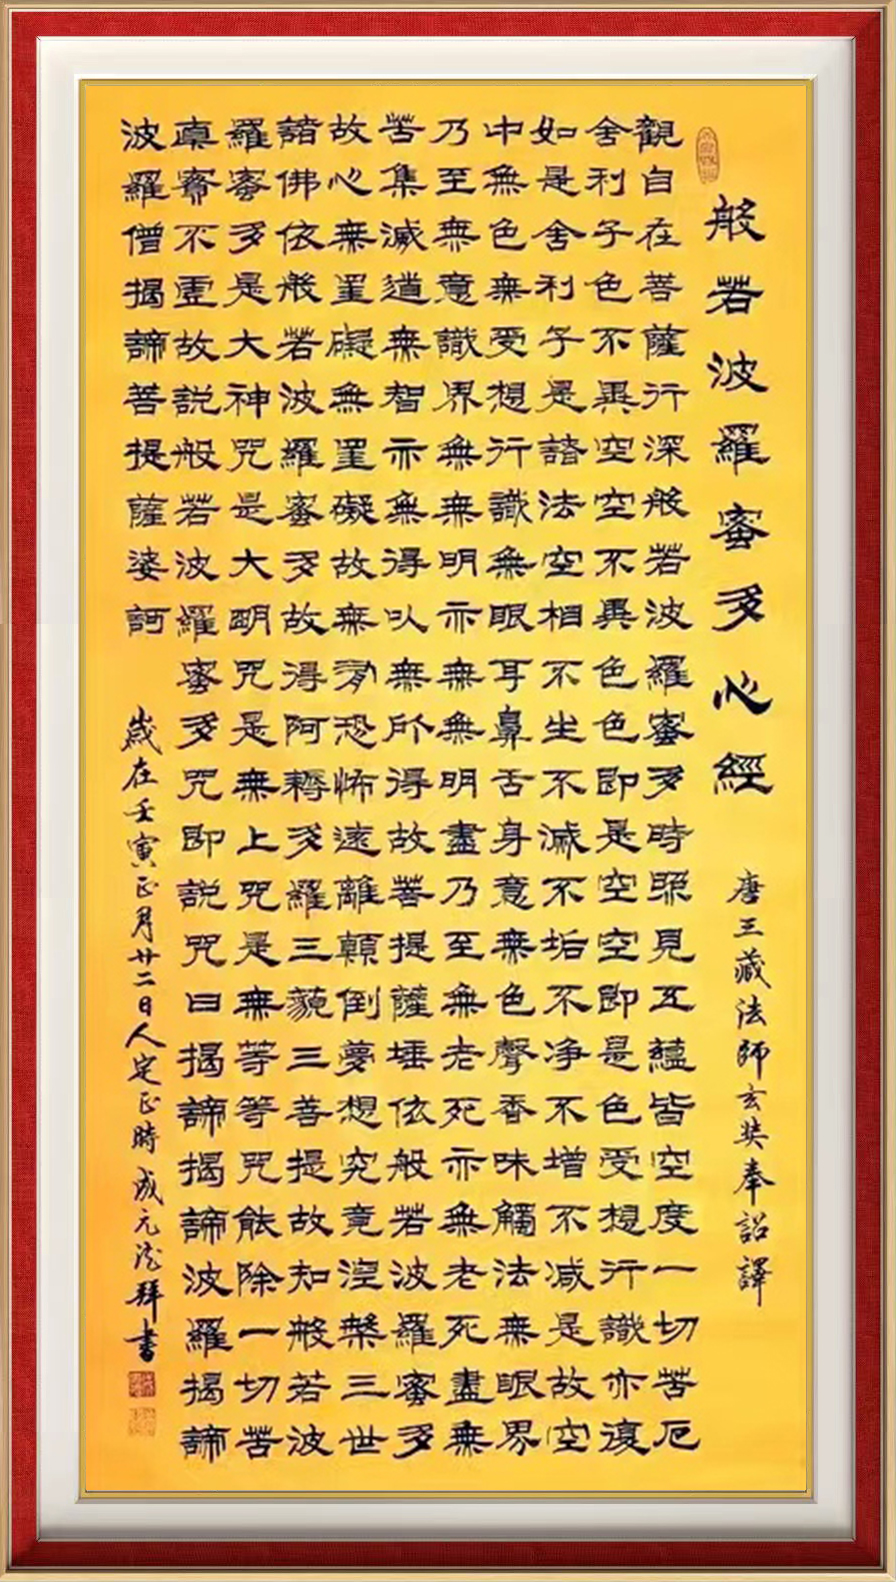 般若波羅蜜多心經
唐三藏法師玄奘奉詔譯
觀自在菩薩行深般若波羅蜜多時照見五蘊皆空度一切苦厄
舍利子色不異空空不異色色即是空空即是色受想行識亦復
如是舍利子是諸法空相不生不滅不垢不淨不增不減是故空
中無色無受想行識無眼耳鼻舌身意無色聲香味觸法無眼界
乃至無意識界無無明亦無無明盡乃至無老死亦無老死盡無
苦集滅道無智亦無得以無所得故菩提薩埵依般若波羅蜜多
故心無罣礙無罣礙故無有恐怖遠離顛倒夢想究竟涅槃三世
諸佛依般若波羅蜜多故得阿耨多羅三藐三菩提故知般若波
羅蜜多是大神咒是大明咒是無上咒是無等等咒能除一切苦
真實不虛故説般若波羅蜜多咒即説咒曰揭諦揭諦波羅揭諦
波羅僧揭諦菩提薩婆訶
歲在壬寅正月廿二日人定正時成元拜書